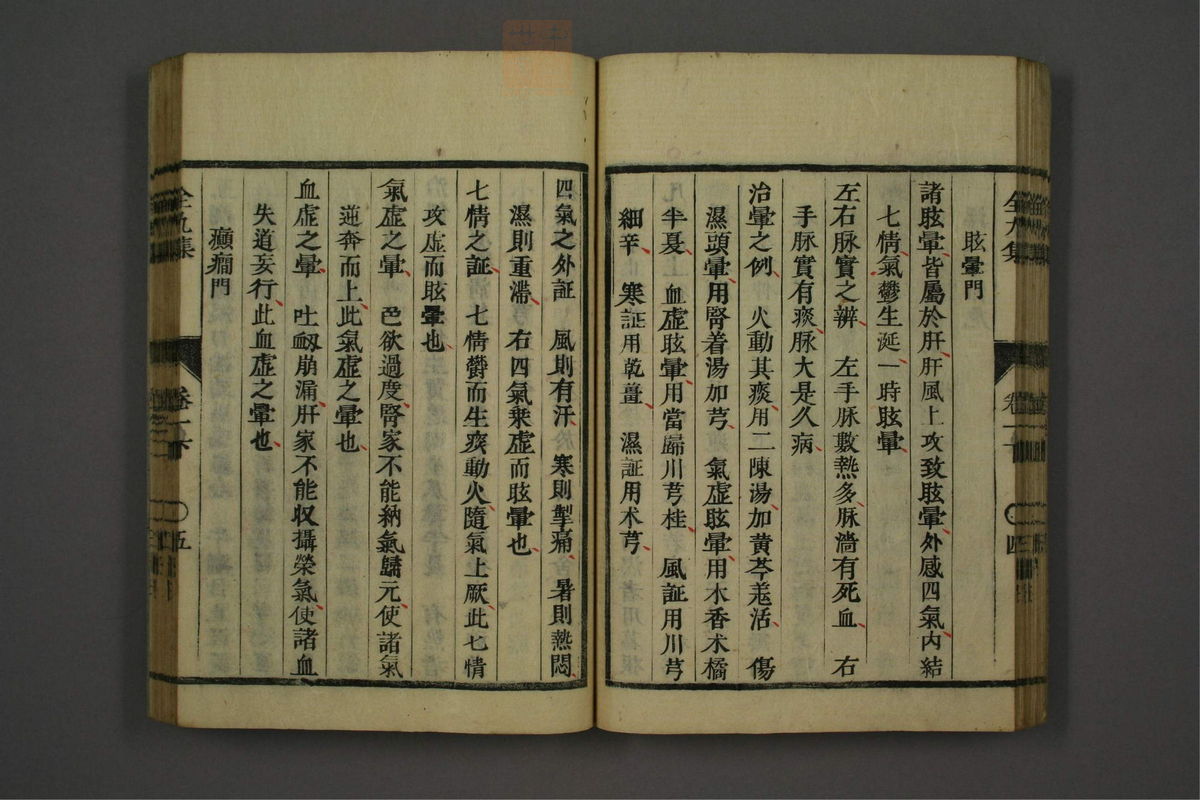 眩暈門
諸眩暈皆屬於肝肝風上攻致眩暈外感四氣內結
七情氣鬱生涎一時眩暈
左右脉實之辨　左手脉數熱多脉濇有死血　右
手脉實有痰脉大是久病
治暈之例　火動其痰用二陳湯加黄芩羗活　傷
濕頭暈用腎着湯加芎　氣虛眩暈用木香术橘
半夏　血虛眩暈用當歸川芎桂　風証用川芎
細辛　寒証用乾薑　濕証用术芎
四氣之外証　風則有汗　寒則掣痛　暑則熱悶
濕則重滯　右四氣乘虛而眩暈也
七情之証　七情欝而生痰動火隨氣上厥此七情
攻虛而眩暈也
氣虛之暈　色欲過度腎家不能納氣歸元使諸氣
逆奔而上此氣虛之暈也
血虛之暈　吐衂崩漏肝家不能収攝榮氣使諸血
失道妄行此血虛之暈也
癲癎門
全九集
四
全九集
五